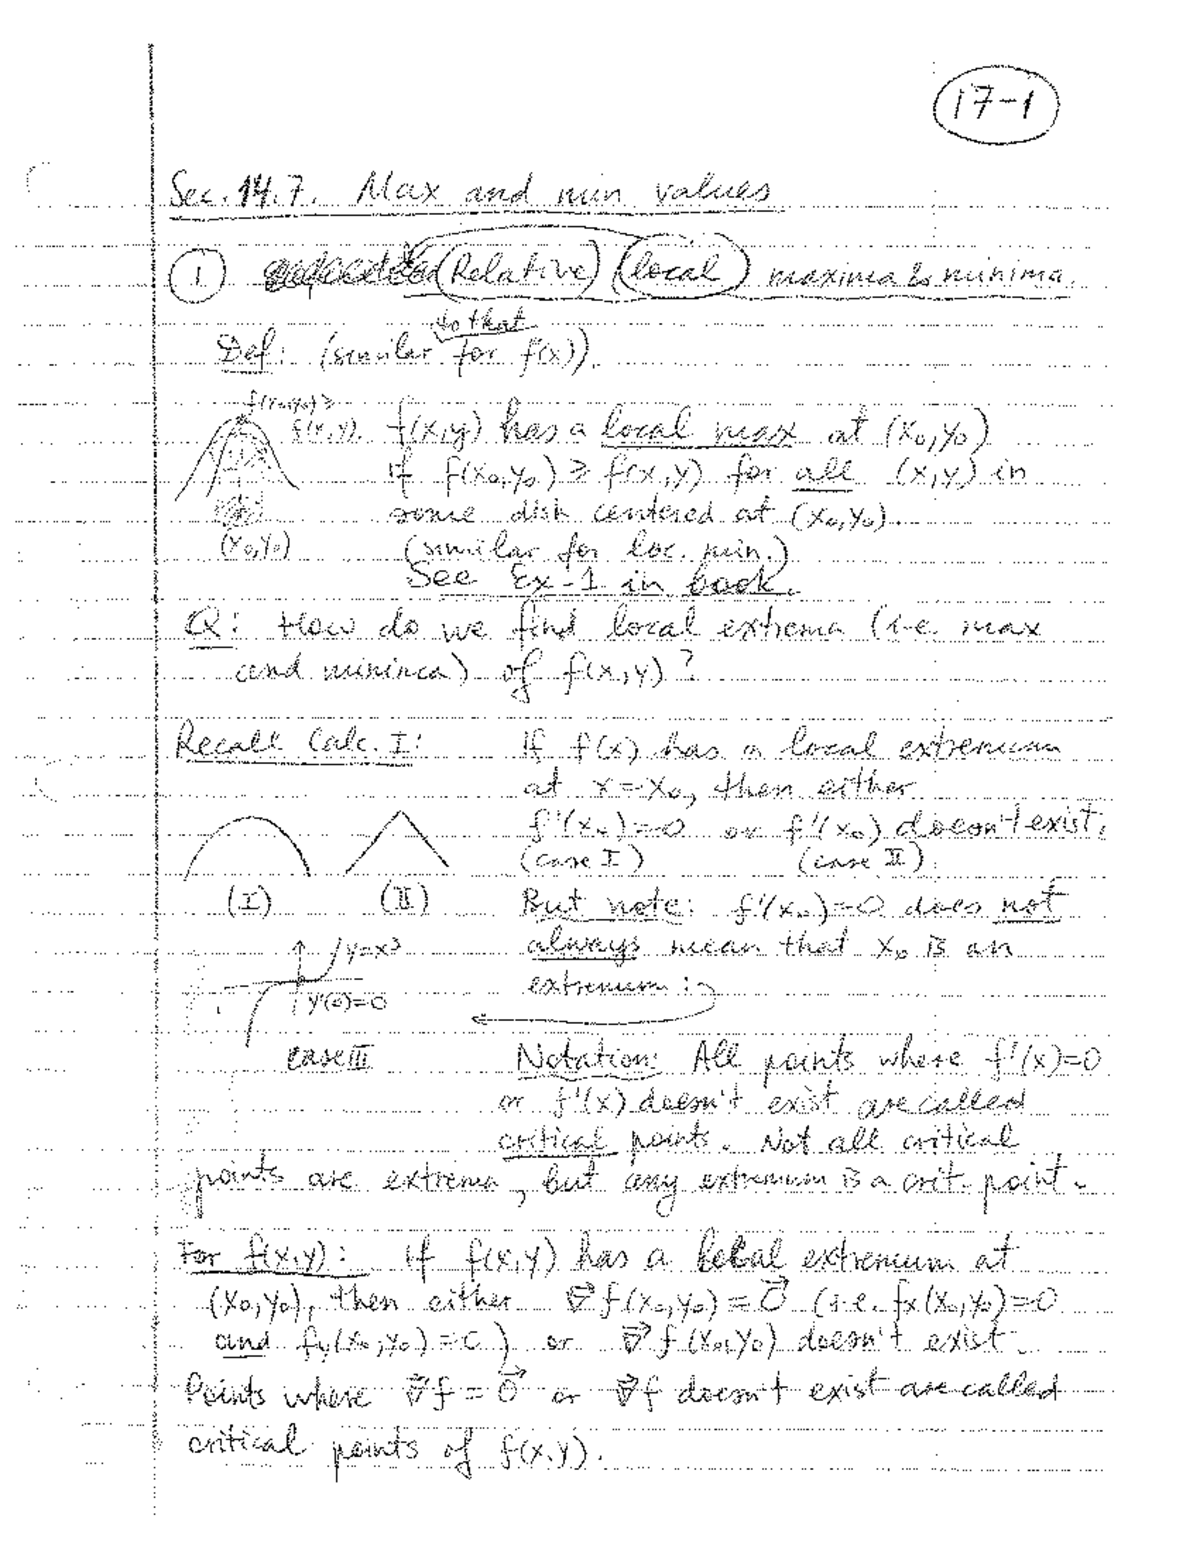 17-1
Sec. 14.7. Max and min values
① (Relative) (local) maxima & minima.
to that
Def: (similar for f(x)).
f(x₀,y₀) ≥
f(x,y). f(x,y) has a local max at (x₀,y₀)
if f(x₀,y₀) ≥ f(x,y) for all (x,y) in
some disk centered at (x₀,y₀).
(x₀,y₀) (similar for loc. min.)
See Ex-1 in book.
Q: How do we find local extrema (i.e. max
and minima) of f(x,y)?
Recall Calc. I: If f(x) has a local extremum
at x=x₀, then either
f'(x₀)=0 or f'(x₀) doesn't exist.
(case I) (case II).
(I) (II) But note: f'(x₀)=0 does not
y=x³ always mean that x₀ is an
y'(0)=0 extremum:
case III Notation: All points where f'(x)=0
or f'(x) doesn't exist are called
critical points. Not all critical
points are extrema, but any extremum is a crit. point.
For f(x,y): if f(x,y) has a local extremum at
(x₀,y₀), then either ∇⃗f(x₀,y₀) = 0⃗ (i.e. fx(x₀,y₀)=0
and fy(x₀,y₀)=0) or ∇⃗f(x₀,y₀) doesn't exist.
Points where ∇⃗f = 0⃗ or ∇⃗f doesn't exist are called
critical points of f(x,y).